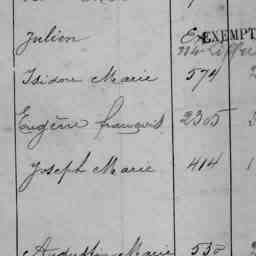 Julien
EXEMPT
Isidore Marie 574
Eugène françois 2305
Joseph Marie 414
Marie 538